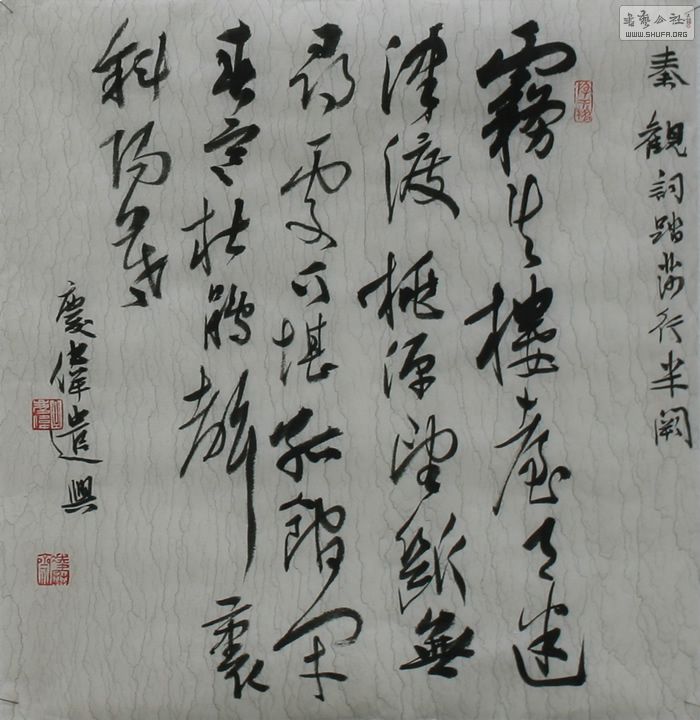 秦觀詞踏莎行半闕
霧失樓臺月迷
津渡桃源望斷無
尋處可堪孤館閉
春寒杜鵑聲裏
斜陽暮
慶偉遣興
書藝公社
WWW.SHUFA.ORG